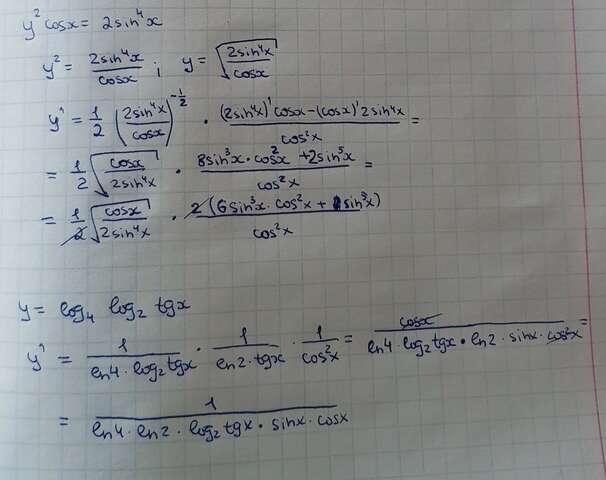 y² cosx = 2sin⁴x
y² = 2sin⁴x/cosx ; y = √(2sin⁴x/cosx)
y' = 1/2 (2sin⁴x/cosx)^(-1/2) · ((2sin⁴x)' cosx - (cosx)' 2sin⁴x)/cos²x =
= 1/2 √(cosx/2sin⁴x) · (8sin³x · cos²x + 2sin⁵x)/cos²x =
= 1/2 √(cosx/2sin⁴x) · 2(6sin³x · cos²x + sin⁵x)/cos²x
y = log₄ log₂ tgx
y' = 1/(ln4 · log₂tgx) · 1/(ln2 · tgx) · 1/cos²x = cosx/(ln4 · log₂tgx · ln2 · sinx · cos²x) =
= 1/(ln4 · ln2 · log₂tgx · sinx · cosx)